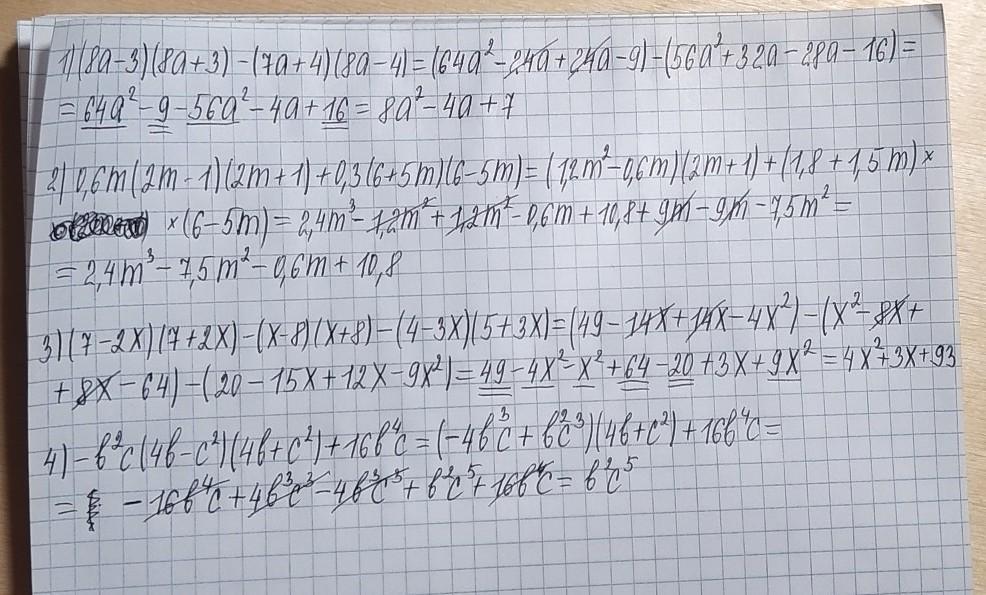 1) (8a-3)(8a+3)-(7a+4)(8a-4)=(64a²-24a+24a-9)-(56a²+32a-28a-16)=
=64a²-9-56a²-4a+16=8a²-4a+7
2) 0,6m(2m-1)(2m+1)+0,3(6+5m)(6-5m)=(1,2m²-0,6m)(2m+1)+(1,8+1,5m)×
×(6-5m)=2,4m³-1,2m²+1,2m²-0,6m+10,8+9m-9m-7,5m²=
=2,4m³-7,5m²-0,6m+10,8
3) (7-2x)(7+2x)-(x-8)(x+8)-(4-3x)(5+3x)=(49-14x+14x-4x²)-(x²-8x+
+8x-64)-(20-15x+12x-9x²)=49-4x²-x²+64-20+3x+9x²=4x²+3x+93
4) -b²c(4b-c²)(4b+c²)+16b⁴c=(-4b³c+b²c³)(4b+c²)+16b⁴c=
=-16b⁴c+4b³c³-4b³c³+b²c⁵+16b⁴c=b²c⁵